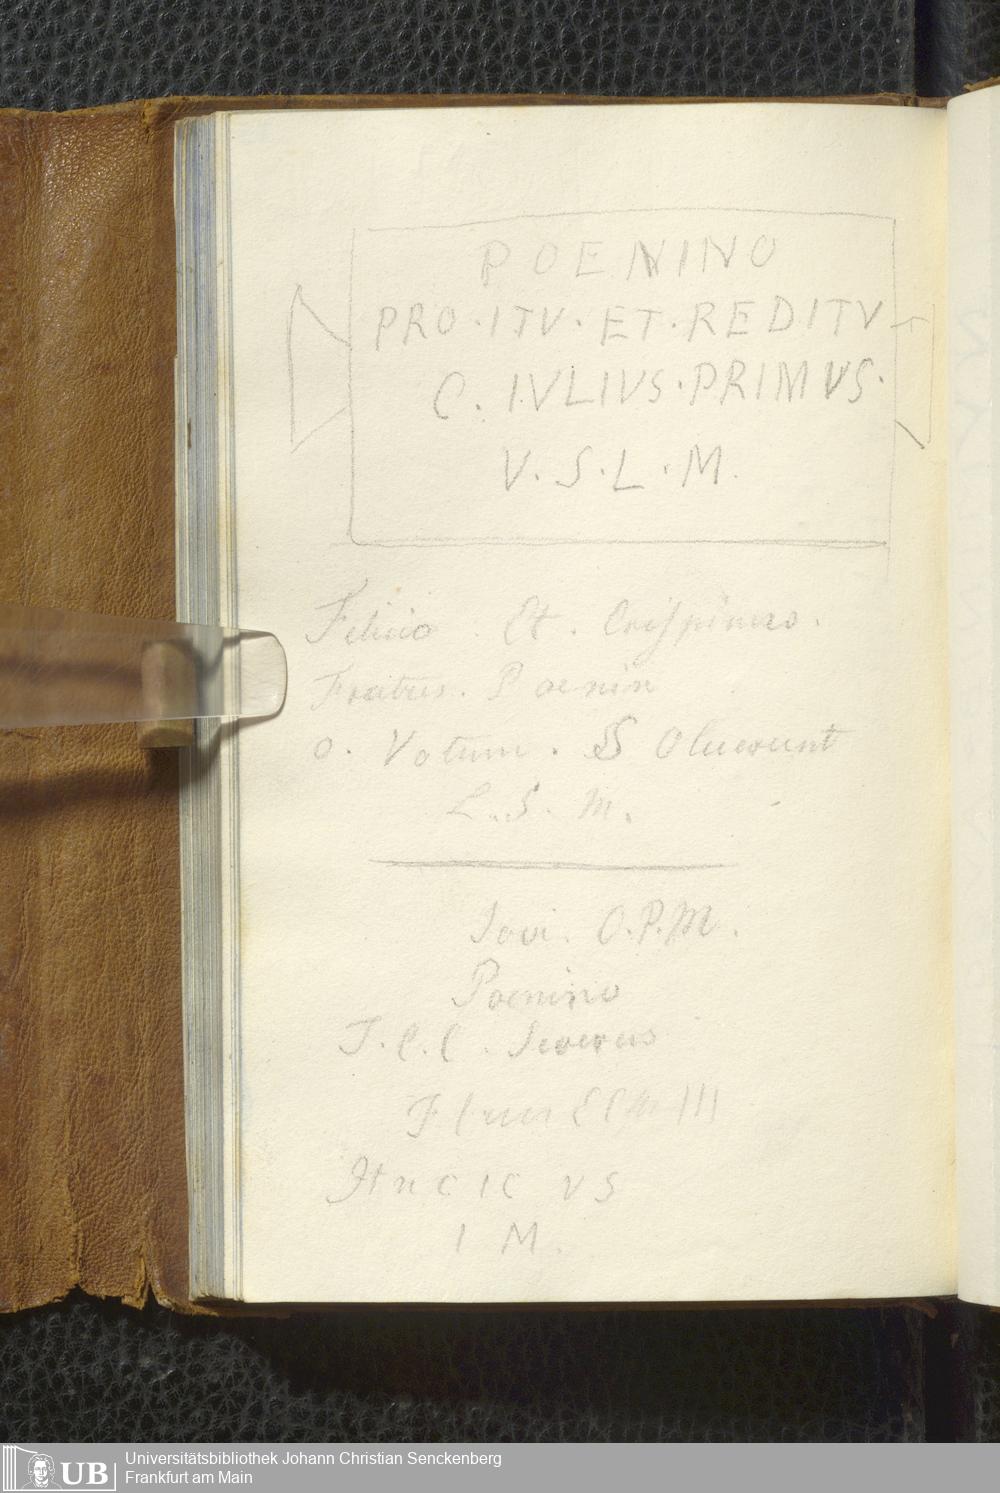 POENINO
PRO · ITV · ET · REDITV
C. IVLIVS · PRIMVS ·
V. S · L · M.
Felicio . Et . Crispinus .
Fratres . Poenin
o . Votum . S Oluerunt
L. S. M.
Jovi. O. P. M.
Poenino
T. C. C . Severus
Fl
III
It n c I C V S
I M.
UB
Universitätsbibliothek Johann Christian Senckenberg
Frankfurt am Main